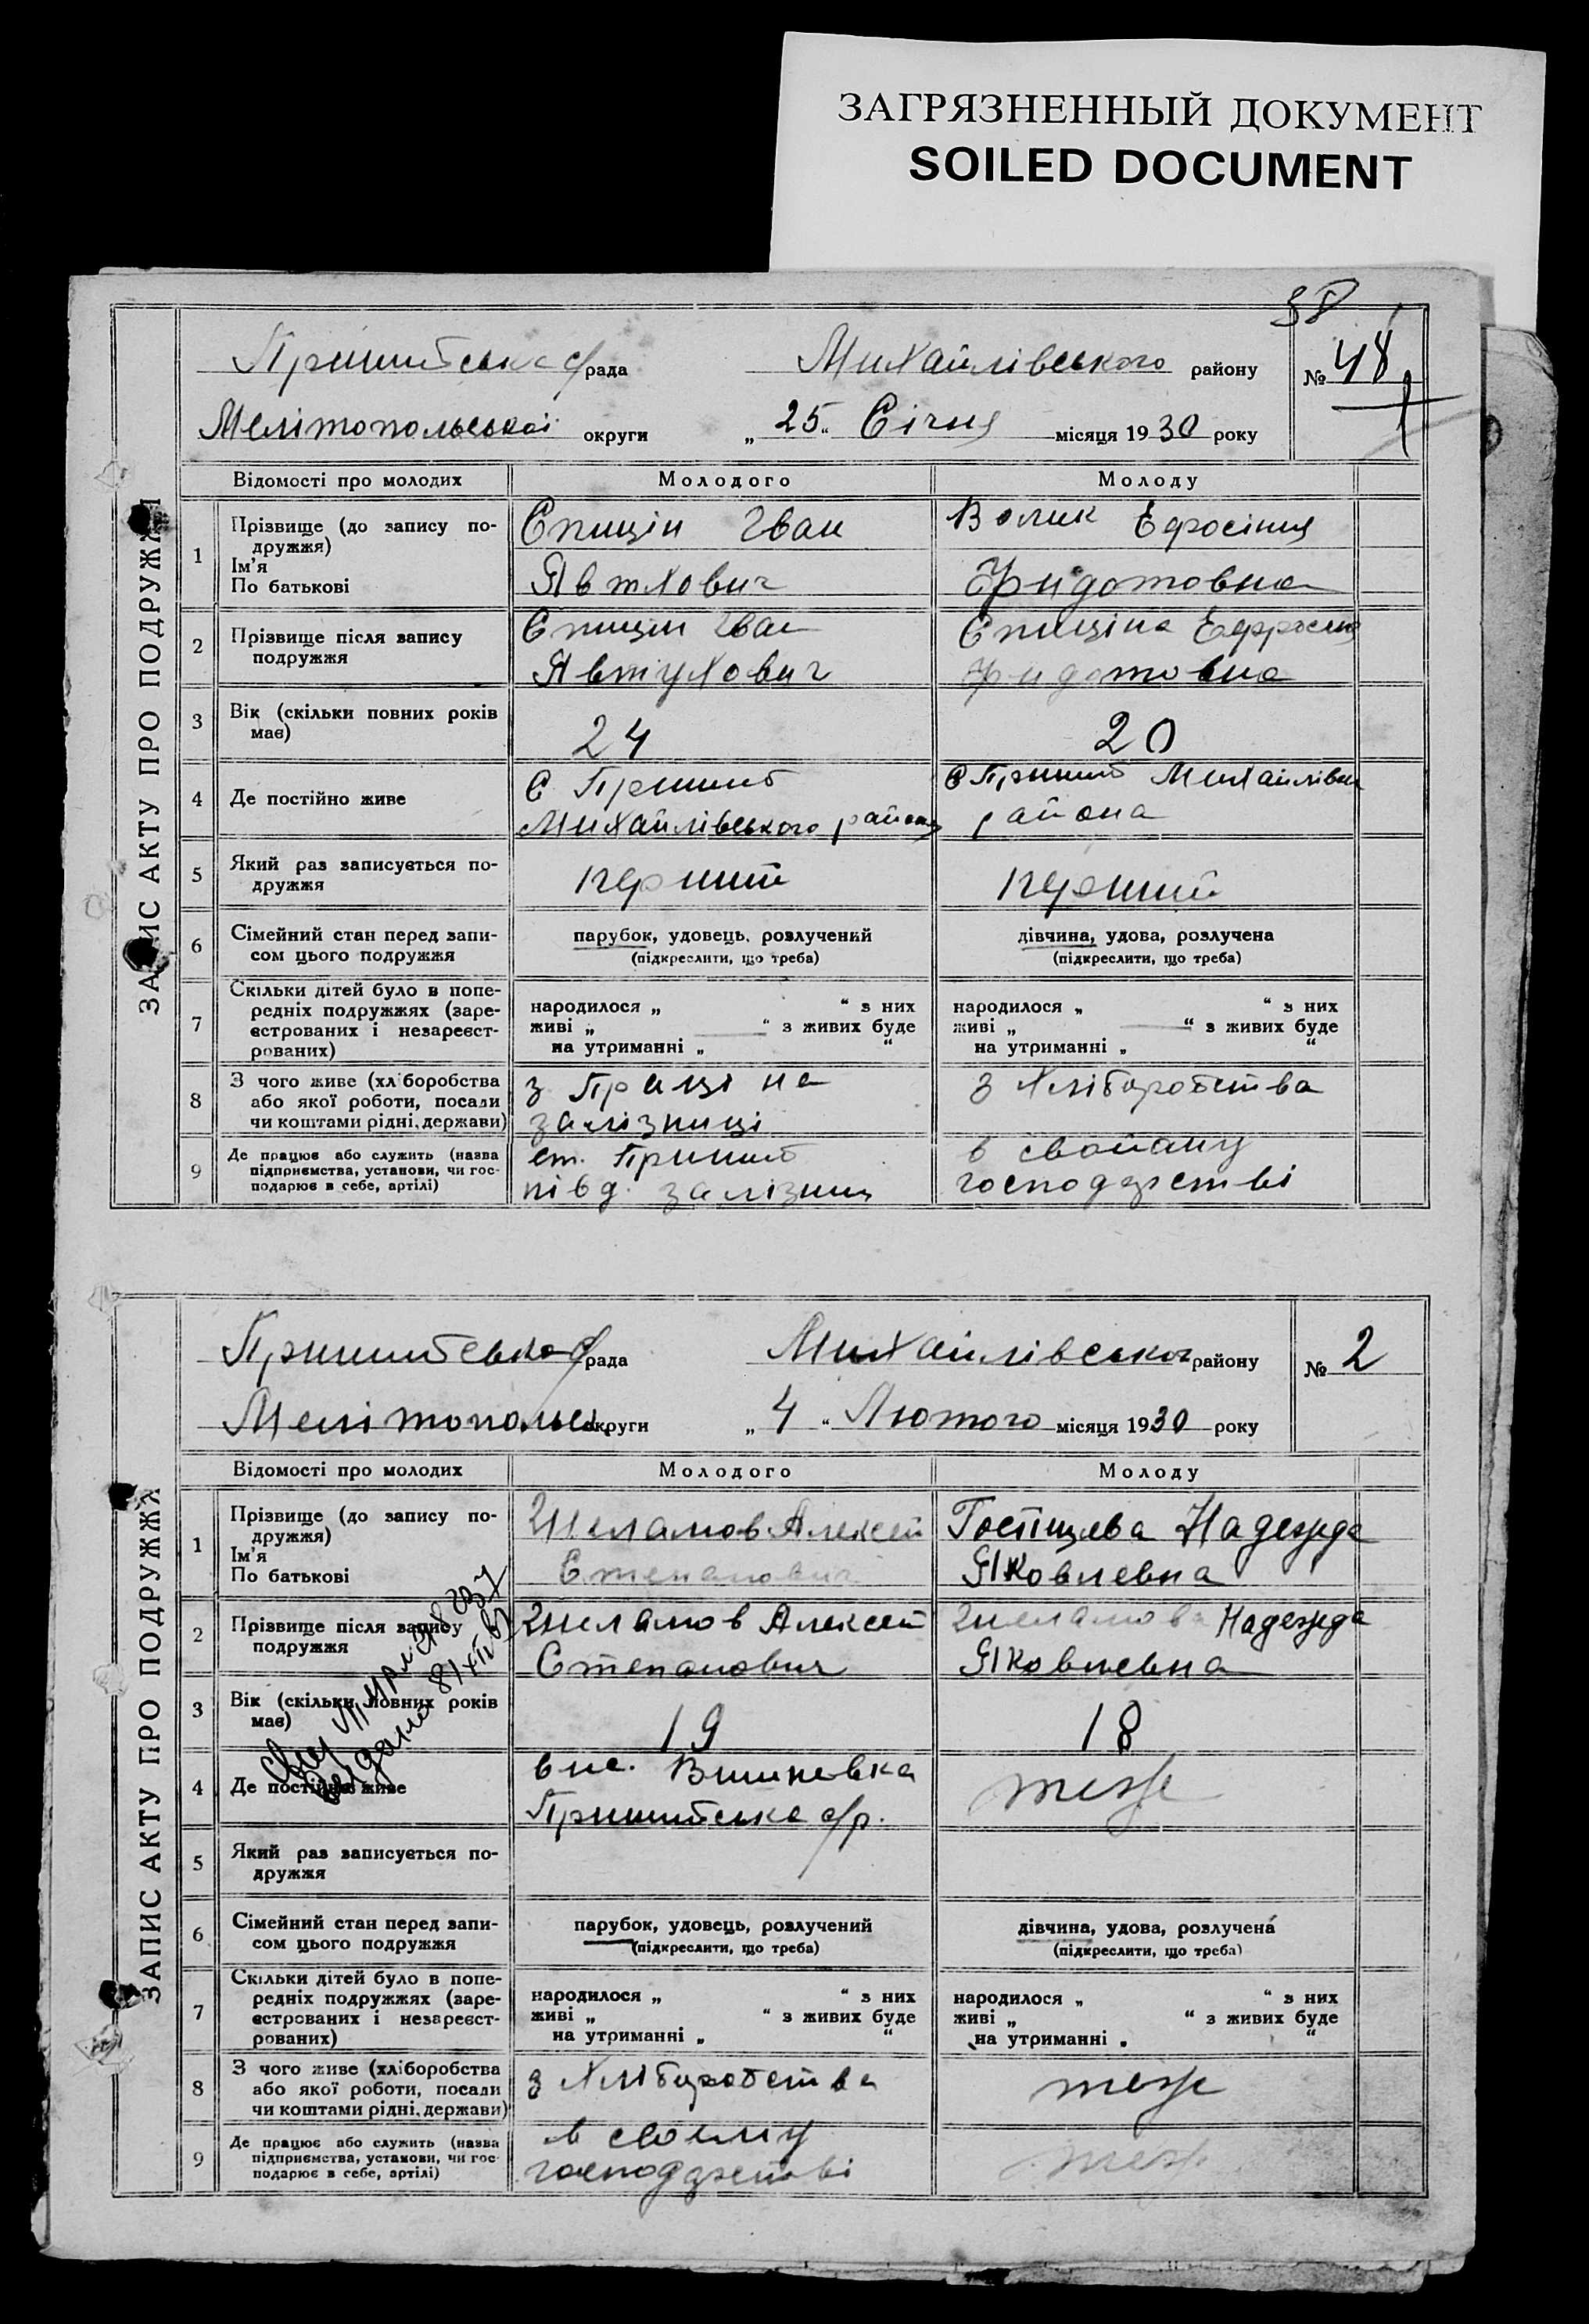 ЗАГРЯЗНЕННЫЙ ДОКУМЕНТ
SOILED DOCUMENT
38
ЗАПИС АКТУ ПРО ПОДРУЖЖЯ
Пришибська с/рада Михайлівського району № 48
1
Мелітопольської округи „ 25 “ Січня місяця 1930 року
Відомості про молодих Молодого Молоду
1 Прізвище (до запису по-
дружжя)
Ім'я
По батькові
Спицін Іван
Явтхович
Волик Ефросіния
2 Прізвище після запису
подружжя
Спицин Іван
Явтухович
Спиціна
3 Вік (скільки повних років
має)
24 20
4 Де постійно живе
С Пришиб
Михайлівського району
С Пришиб
района
5 Який раз записується по-
дружжя
перший перший
6 Сімейний стан перед запи-
сом цього подружжя
парубок, удовець, розлучений
(підкреслити, що треба)
дівчина, удова, розлучена
(підкреслити, що треба)
7 Скільки дітей було в попе-
редніх подружжях (заре-
єстрованих і незареєст-
рованих)
народилося „ “ з них
живі „ “ з живих буде
на утриманні „ “
народилося „ “ з них
живі „ “ з живих буде
на утриманні „ “
8 З чого живе (хліборобства
або якої роботи, посади
чи коштами рідні, держави)
з Праці на
залізниці
з Хліборобства
9 Де працює або служить (назва
підприємства, установи, чи гос-
подарює в себе, артілі)
ст. Пришиб
півд. залізниц
в
господарстві
ЗАПИС АКТУ ПРО ПОДРУЖЖЯ
Пришибська с/рада Михайлівського району № 2
Мелітопольс. округи „ 4 “ Лютого місяця 1930 року
Відомості про молодих Молодого Молоду
1 Прізвище (до запису по-
дружжя)
Ім'я
По батькові
Шеламов Алексей
Степанович
Гостищева Надежда
Яковлевна
2 Прізвище після запису
подружжя
Шеламов Алексей
Степанович
Шеламова Надежда
Яковлевна
3 Вік (скільки повних років
має)
19 18
4 Де постійно живе
Вишневка
Пришибська с/р.
теж
5 Який раз записується по-
дружжя
6 Сімейний стан перед запи-
сом цього подружжя
парубок, удовець, розлучений
(підкреслити, що треба)
дівчина, удова, розлучена
(підкреслити, що треба)
7 Скільки дітей було в попе-
редніх подружжях (заре-
єстрованих і незареєст-
рованих)
народилося „ “ з них
живі „ “ з живих буде
на утриманні „ “
народилося „ “ з них
живі „ “ з живих буде
на утриманні „ “
8 З чого живе (хліборобства
або якої роботи, посади
чи коштами рідні, держави)
з Хліборобства
теж
9 Де працює або служить (назва
підприємства, установи, чи гос-
подарює в себе, артілі)
в своему
господарстві
теж